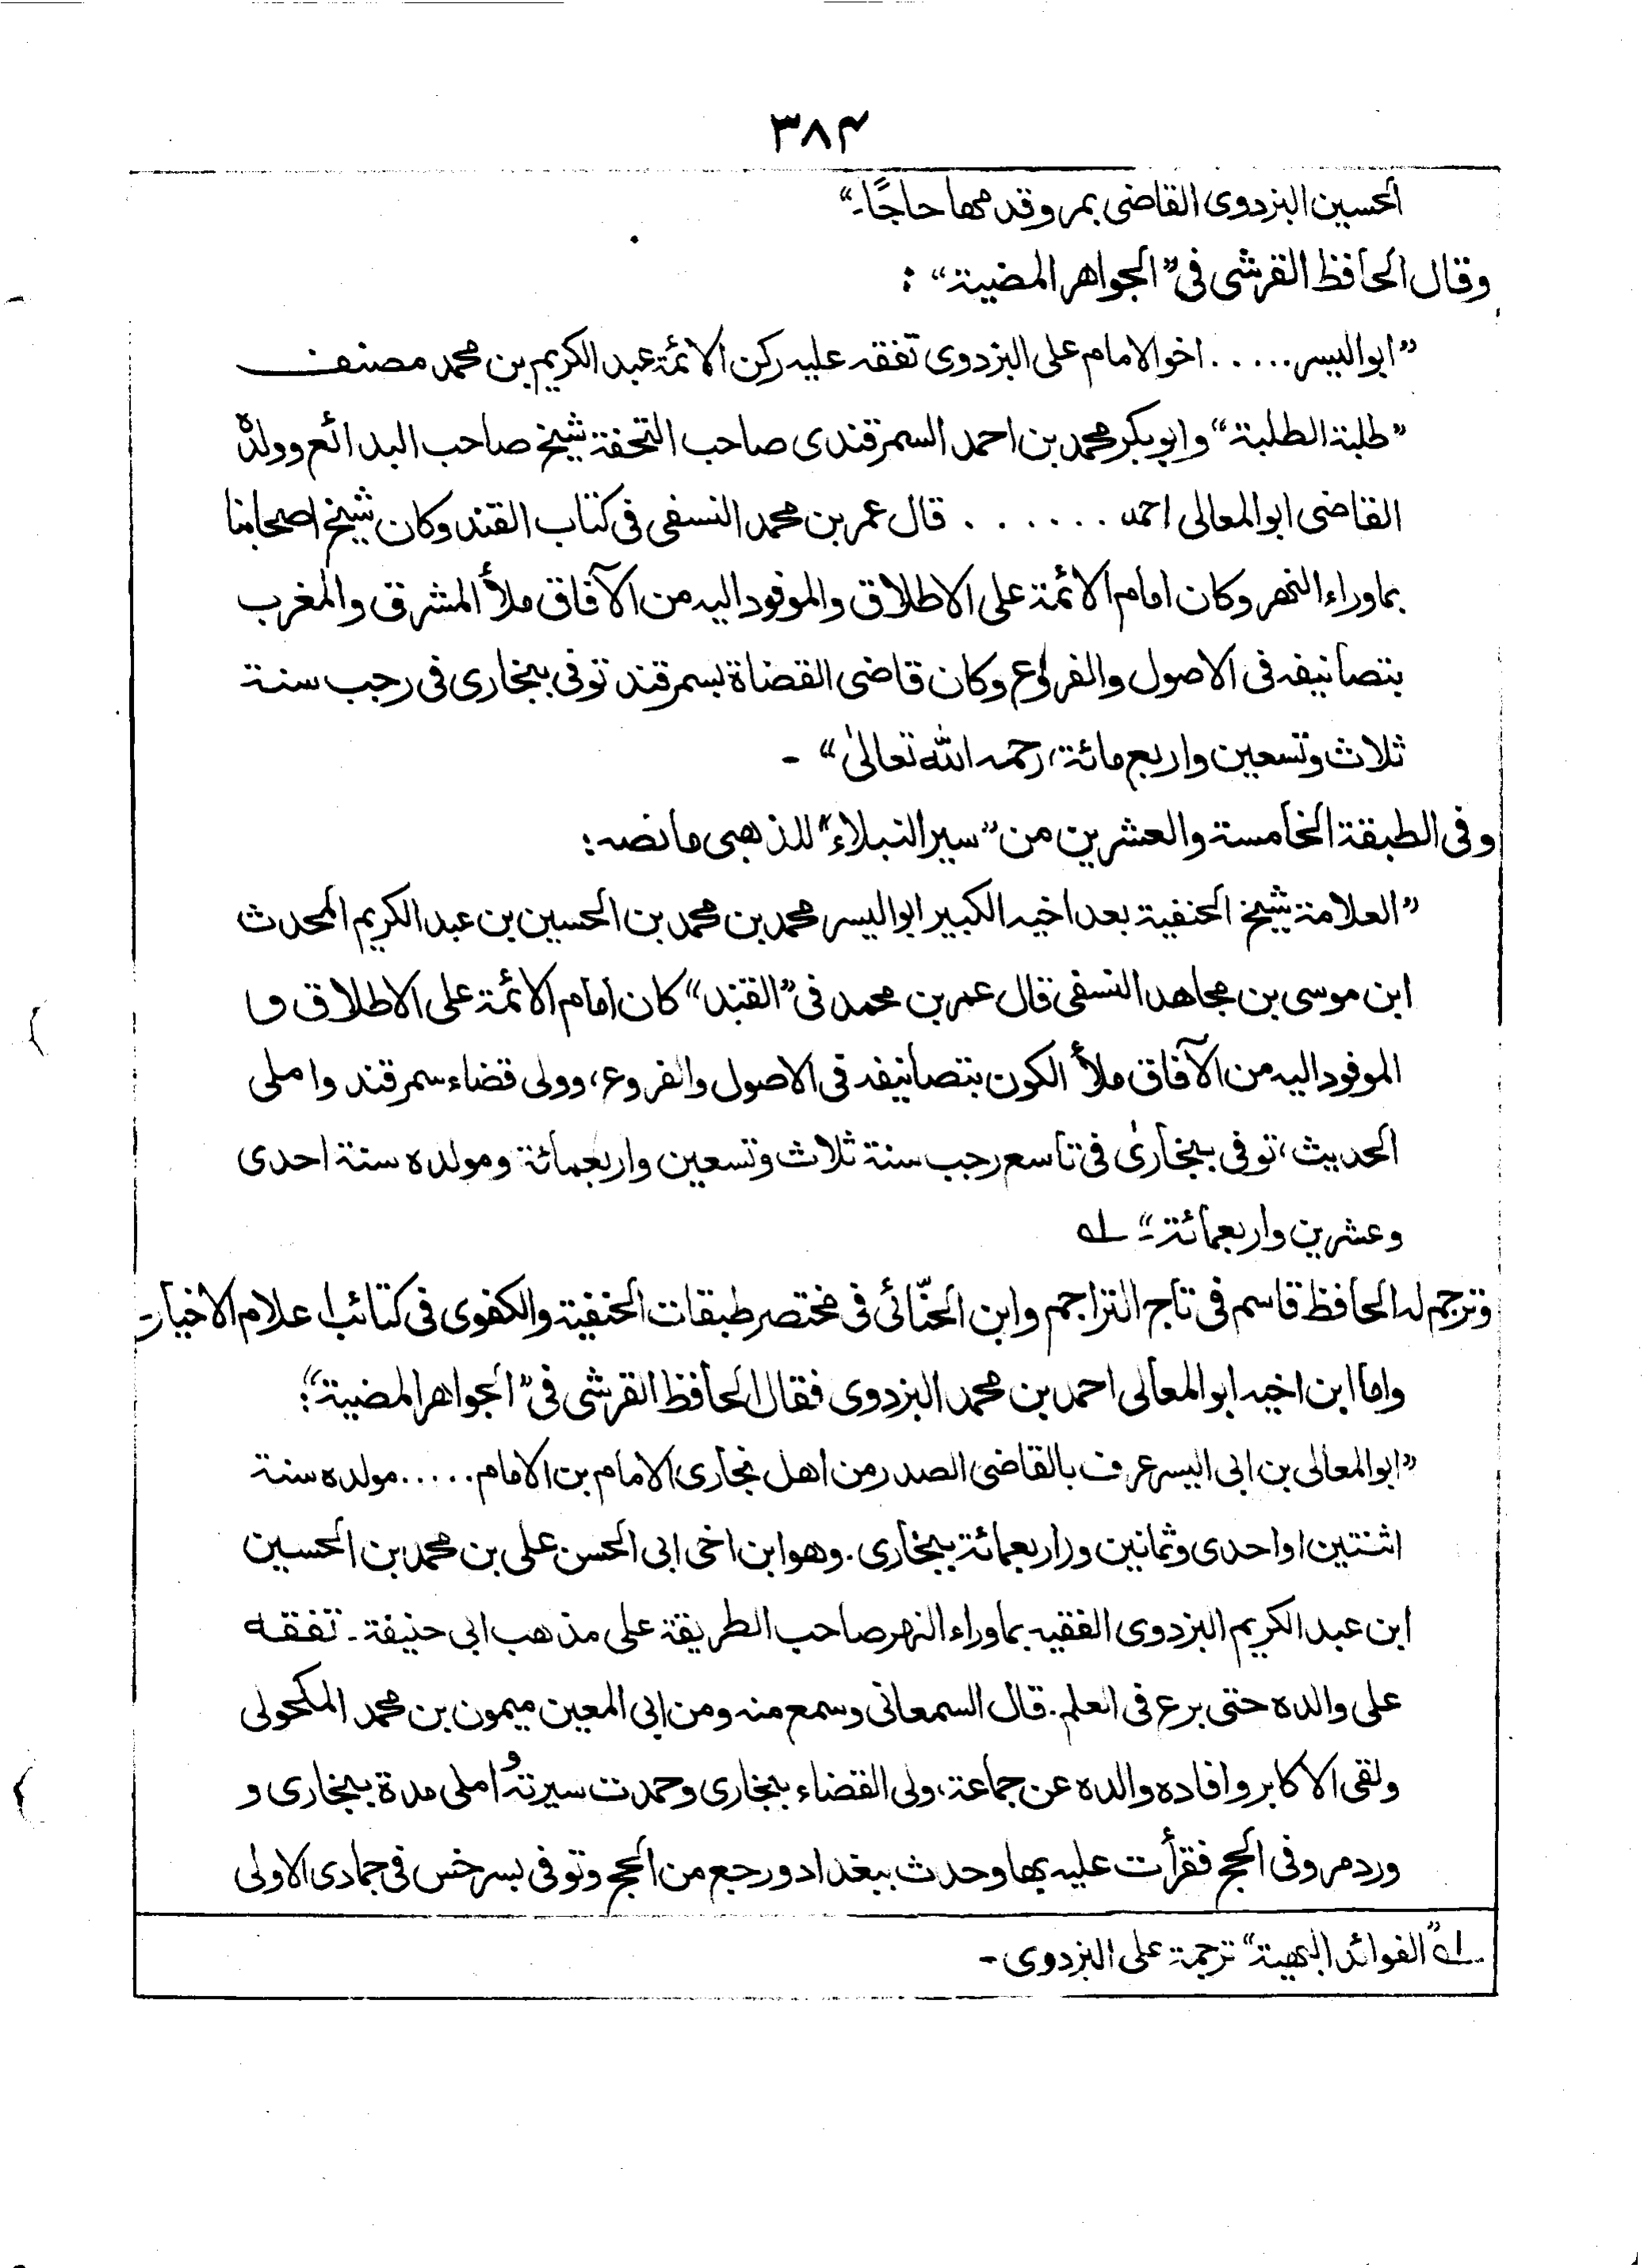 ۳۸۴
الحسین البزدوی القاضی بمرو قدمها حاجًا۔“
وقال الحافظ القرشی فی ”الجواهر المضیة“ :
”ابو الیسر ..... اخو الامام علی البزدوی تفقه علیه رکن الائمة عبد الکریم بن محمد مصنف
”طلبة الطلبة“ وابو بکر محمد بن احمد السمرقندی صاحب التحفة شیخ صاحب البدائع وولدہ
القاضی ابو المعالی احمد ...... قال عمر بن محمد النسفی فی کتاب القند وکان شیخ اصحابنا
بماوراء النهر وکان امام الائمة علی الاطلاق والموفود الیه من الآفاق ملأ المشرق والمغرب
بتصانیفه فی الاصول والفروع وکان قاضی القضاة بسمرقند توفی ببخاری فی رجب سنة
ثلاث وتسعین واربع مائة، رحمه الله تعالیٰ“ -
وفی الطبقة الخامسة والعشرین من ”سیر النبلاء“ للذهبی ما نصه :
”العلامة شیخ الحنفیة بعد اخیه الکبیر ابو الیسر محمد بن محمد بن الحسین بن عبد الکریم المحدث
ابن موسی بن مجاهد النسفی قال عمر بن محمد فی ”القند“ کان امام الائمة علی الاطلاق و
الموفود الیه من الآفاق ملأ الکون بتصانیفه فی الاصول والفروع، وولی قضاء سمرقند واملی
الحدیث، توفی ببخاریٰ فی تاسع رجب سنة ثلاث وتسعین واربعمائة ومولده سنة احدی
وعشرین واربعمائة۔“ له
وترجم له الحافظ قاسم فی تاج التراجم وابن الحنّائی فی مختصر طبقات الحنفیة والکفوی فی کتائب اعلام الاخیار۔
واما ابن اخیه ابو المعالی احمد بن محمد البزدوی فقال الحافظ القرشی فی ”الجواهر المضیة“:
”ابو المعالی بن ابی الیسر عرف بالقاضی الصدر من اهل بخاری الامام بن الامام ..... مولده سنة
اثنتین او احدی وثمانین وراربعمائة ببخاری. وهو ابن اخی ابی الحسن علی بن محمد بن الحسین
ابن عبد الکریم البزدوی الفقیه بماوراء النهر صاحب الطریقة علی مذهب ابی حنیفة۔ تفقه
علی والده حتی برع فی العلم. قال السمعانی وسمع منه ومن ابی المعین میمون بن محمد المکحولی
ولقی الاکابر وافاده والده عن جماعة، ولی القضاء ببخاری وحمدت سیرتهُ واملی مدة ببخاری و
ورد مرو فی الحج فقرأت علیه بها وحدث ببغداد ورجع من الحج وتوفی بسرخس فی جمادی الاولی
له ”الفوائد البهیة“ ترجمة علی البزدوی -